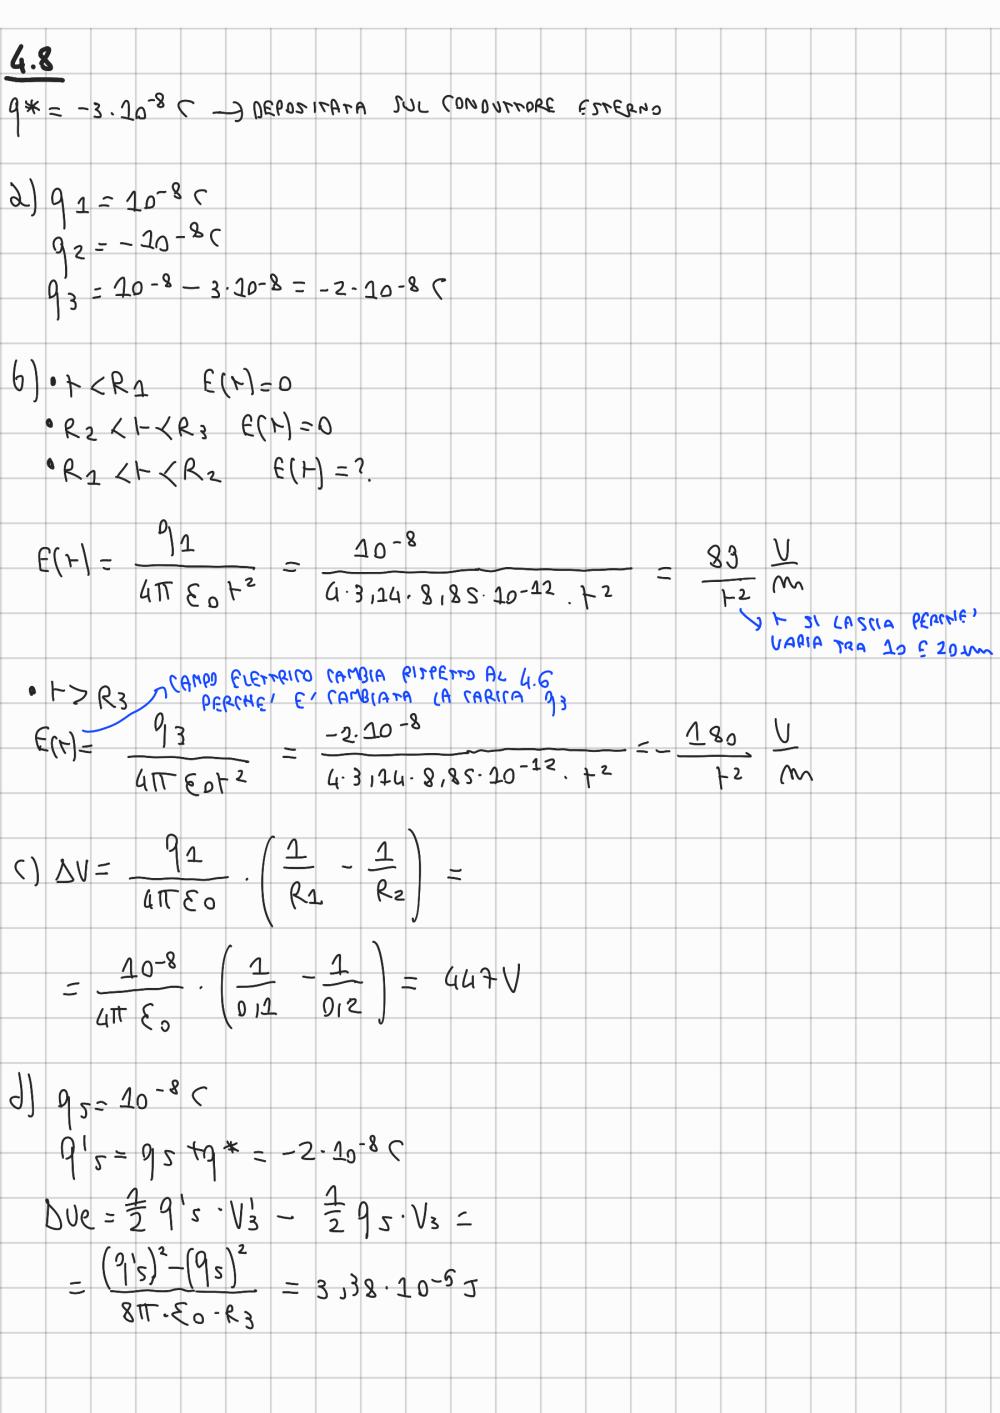 4.8
q* = -3·10⁻⁸ C → DEPOSITATA SUL CONDUTTORE ESTERNO
a) q1 = 10⁻⁸ C
q2 = -10⁻⁸ C
q3 = 10⁻⁸ - 3·10⁻⁸ = -2·10⁻⁸ C
b) • r < R1 E(r) = 0
• R2 < r < R3 E(r) = 0
• R1 < r < R2 E(r) = ?
E(r) = q1 / (4π ε0 r²) = 10⁻⁸ / (4·3,14·8,85·10⁻¹²·r²) = 89 / r² V/m
→ r SI LASCIA PERCHE'
VARIA TRA 10 E 20 cm
• r > R3 → CAMPO ELETTRICO CAMBIA RISPETTO AL 4.6
PERCHE' E' CAMBIATA LA CARICA q3
E(r) = q3 / (4π ε0 r²) = -2·10⁻⁸ / (4·3,14·8,85·10⁻¹²·r²) = - 180 / r² V/m
c) ΔV = q1 / (4π ε0) · (1/R1 - 1/R2) =
= 10⁻⁸ / (4π ε0) · (1/0,1 - 1/0,2) = 447 V
d) qs = 10⁻⁸ C
q's = qs + q* = -2·10⁻⁸ C
ΔUe = 1/2 q's · V'3 - 1/2 qs · V3 =
= ((q's)² - (qs)²) / (8π · ε0 · R3) = 3,38·10⁻⁵ J